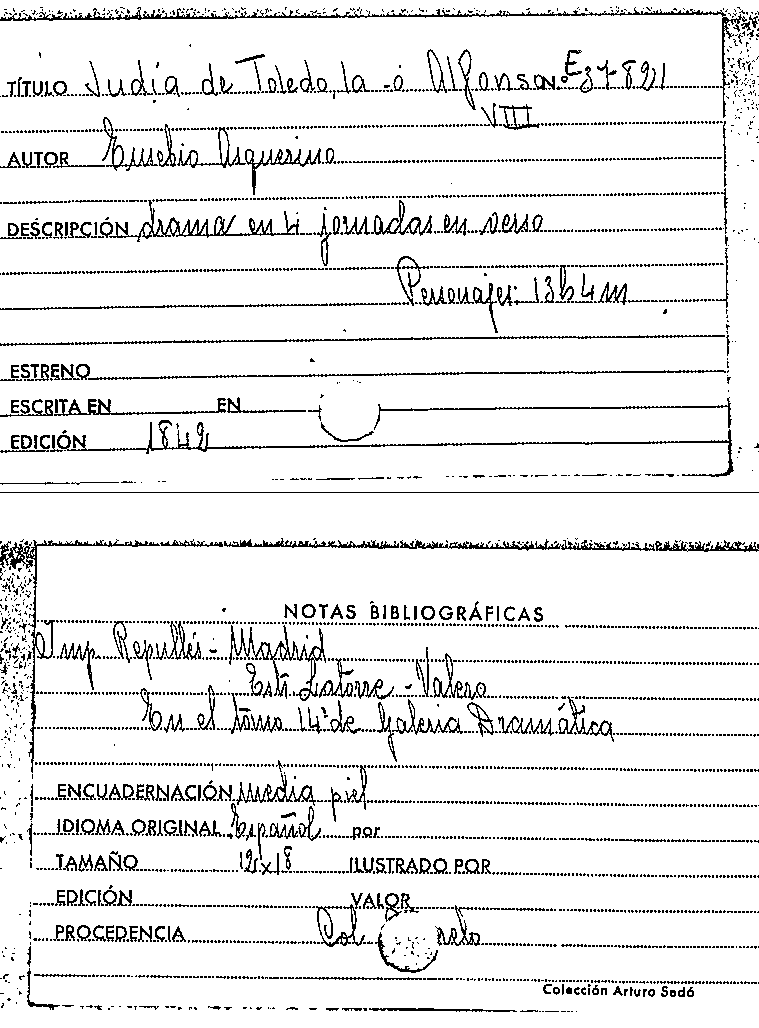 TÍTULO Judía de Toledo, la -ó Alfonso N.º E 37-821
VIII
AUTOR Eusebio Asquerino
DESCRIPCIÓN drama en 4 jornadas en verso
Personajes: 13h 4m
ESTRENO
ESCRITA EN EN
EDICIÓN 1842
NOTAS BIBLIOGRÁFICAS
Imp. Repullés - Madrid
Estr. Latorre - Valero
En el tomo 14 de Galeria Dramática
ENCUADERNACIÓN media piel
IDIOMA ORIGINAL Español por
TAMAÑO 12x18 ILUSTRADO POR
EDICIÓN VALOR
PROCEDENCIA Col.
Colección Arturo Sedó